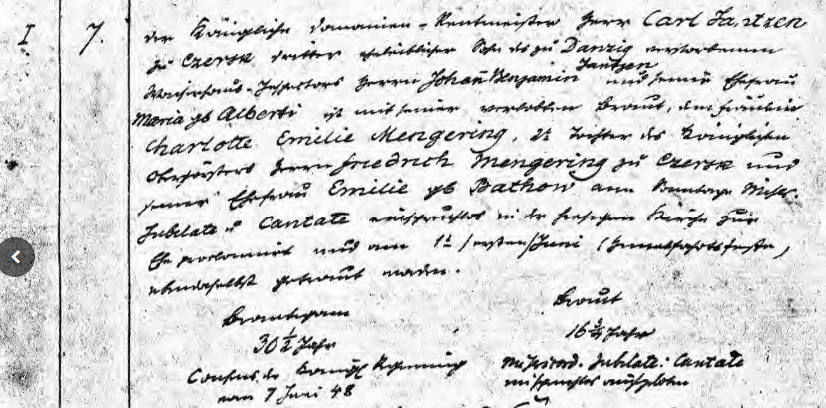 I 7. der Königliche Domainen-Rentmeister Herr Carl Jantzen
zu Czersk, dritter ehelicher Sohn des zu Danzig verstorbenen
Waisenhaus-Inspectors Herrn Johañ Benjamin Jantzen und seiner Ehefrau
Maria gb Alberti ist mit seiner verlobten Braut, dem Fräulein
Charlotte Emilie Mengering, 2t Tochter des Königlichen
Oberförsters Herrn Friedrich Mengering zu Czersk und
seiner Ehefrau Emilie gb Bathow am Sonntage
Jubilate u Cantate einspruchlos in der hiesigen Kirche zur
Ehe proclamirt und am 1t /ersten/ Juni (Himmelfahrtsfeste)
ebendaselbst getraut worden.
Bräutigam
30 1/2 Jahr
Consens der Königl Regierung
vom 7 Juni 48
Braut
16 3/4 Jahr
Misericord. Jubilate: Cantate
einspruchlos aufgeboten